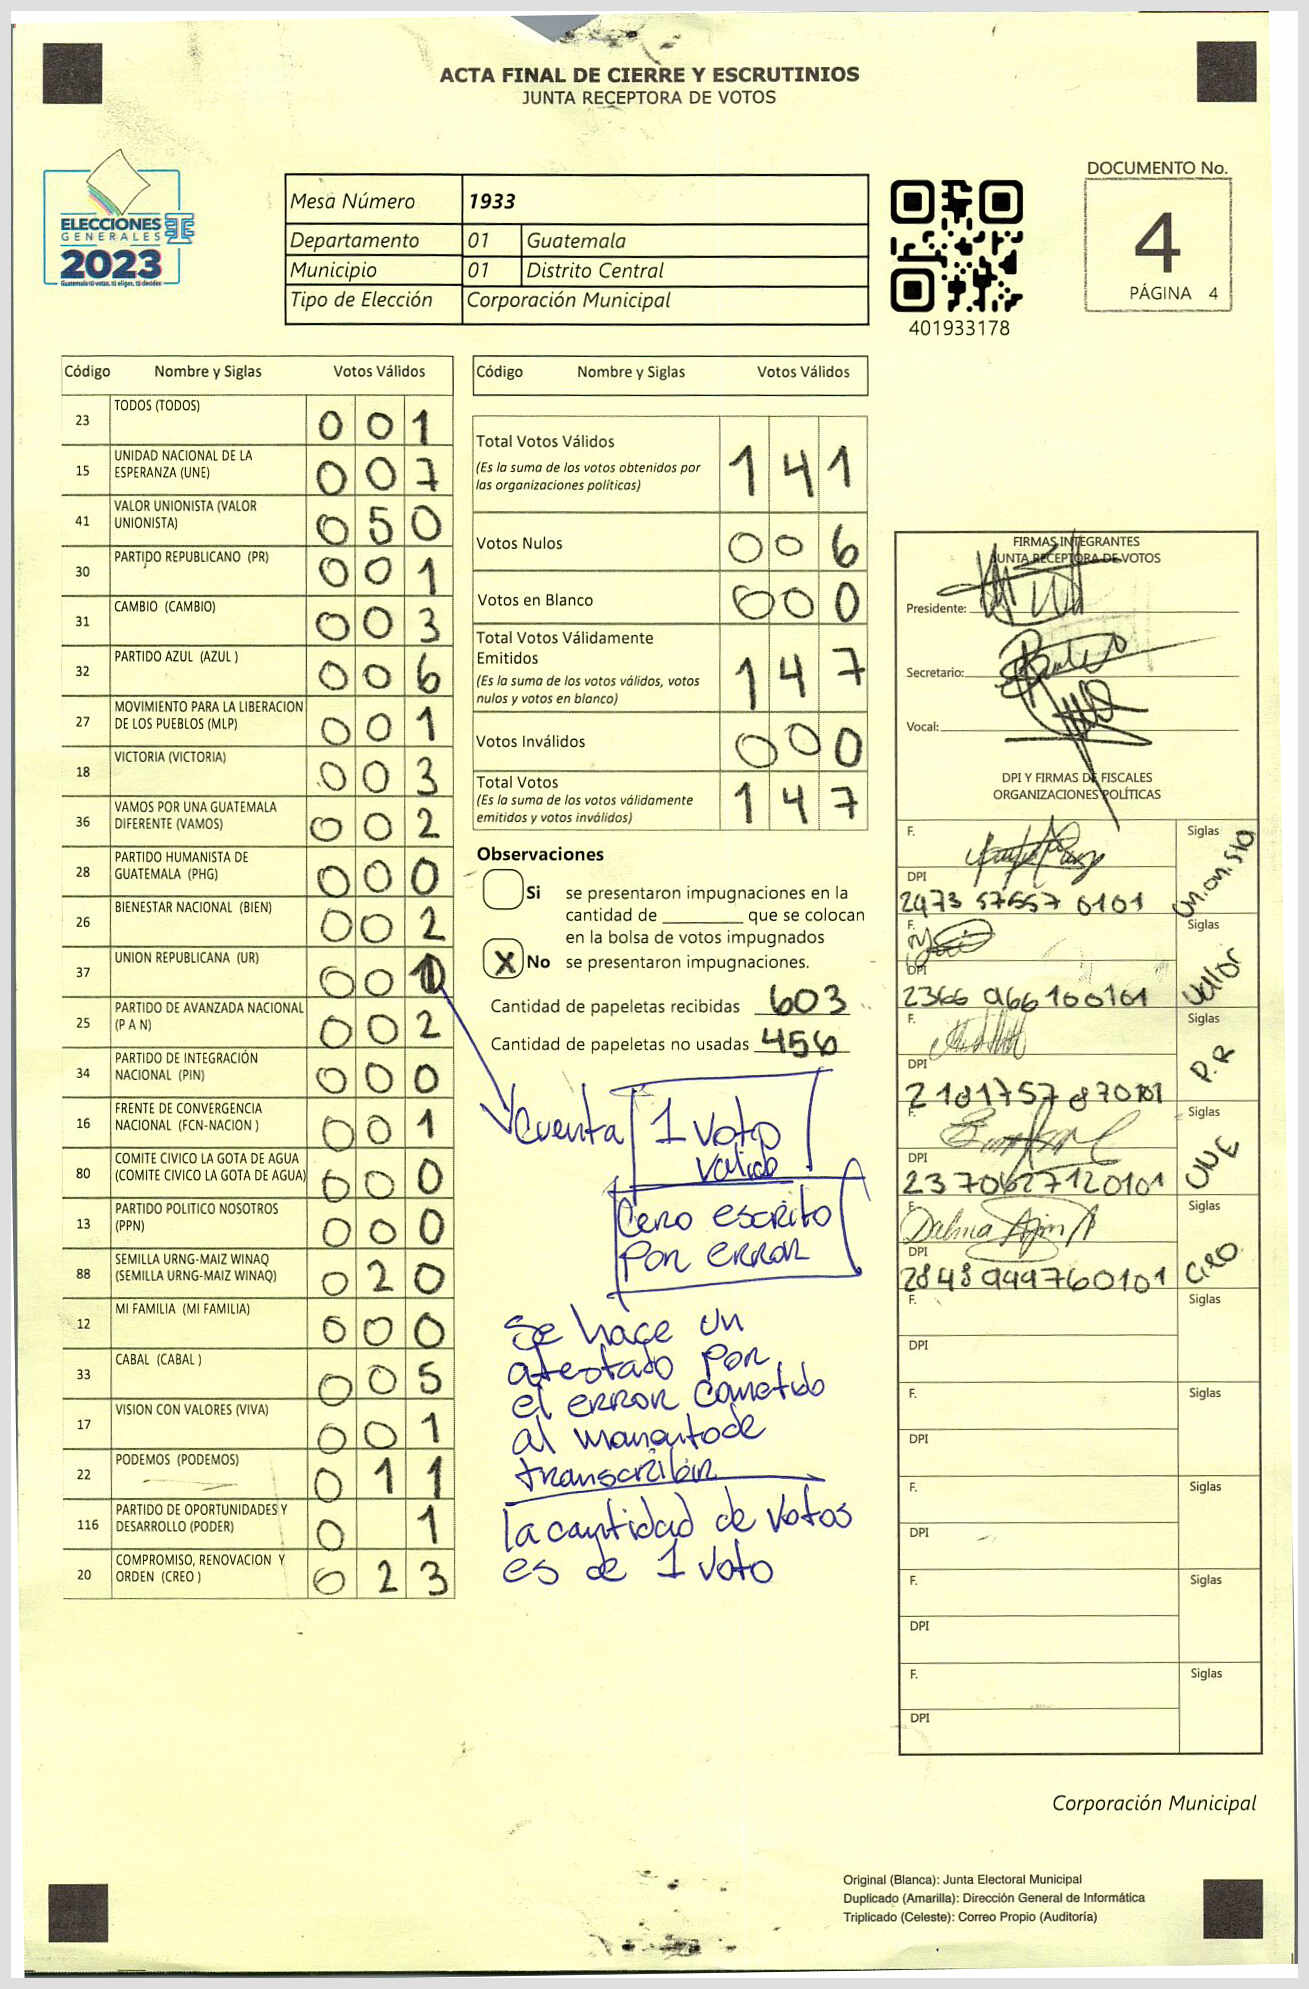 ACTA FINAL DE CIERRE Y ESCRUTINIOS
JUNTA RECEPTORA DE VOTOS
ELECCIONES
GENERALES
2023
Guatemala tú votas, tú eliges, tú decides
Mesa Número 1933
Departamento 01 Guatemala
Municipio 01 Distrito Central
Tipo de Elección Corporación Municipal
401933178
DOCUMENTO No.
4
PÁGINA 4
Código Nombre y Siglas Votos Válidos
23 TODOS (TODOS) 0 0 1
15 UNIDAD NACIONAL DE LA
ESPERANZA (UNE) 0 0 7
41 VALOR UNIONISTA (VALOR
UNIONISTA) 0 5 0
30 PARTIDO REPUBLICANO (PR) 0 0 1
31 CAMBIO (CAMBIO) 0 0 3
32 PARTIDO AZUL (AZUL ) 0 0 6
27 MOVIMIENTO PARA LA LIBERACION
DE LOS PUEBLOS (MLP) 0 0 1
18 VICTORIA (VICTORIA) 0 0 3
36 VAMOS POR UNA GUATEMALA
DIFERENTE (VAMOS) 0 0 2
28 PARTIDO HUMANISTA DE
GUATEMALA (PHG) 0 0 0
26 BIENESTAR NACIONAL (BIEN) 0 0 2
37 UNION REPUBLICANA (UR) 0 0 1
25 PARTIDO DE AVANZADA NACIONAL
(P A N) 0 0 2
34 PARTIDO DE INTEGRACIÓN
NACIONAL (PIN) 0 0 0
16 FRENTE DE CONVERGENCIA
NACIONAL (FCN-NACION ) 0 0 1
80 COMITE CIVICO LA GOTA DE AGUA
(COMITE CIVICO LA GOTA DE AGUA) 0 0 0
13 PARTIDO POLITICO NOSOTROS
(PPN) 0 0 0
88 SEMILLA URNG-MAIZ WINAQ
(SEMILLA URNG-MAIZ WINAQ) 0 2 0
12 MI FAMILIA (MI FAMILIA) 0 0 0
33 CABAL (CABAL ) 0 0 5
17 VISION CON VALORES (VIVA) 0 0 1
22 PODEMOS (PODEMOS) 0 1 1
116 PARTIDO DE OPORTUNIDADES Y
DESARROLLO (PODER) 0 1
20 COMPROMISO, RENOVACION Y
ORDEN (CREO ) 0 2 3
Código Nombre y Siglas Votos Válidos
Total Votos Válidos 1 4 1
(Es la suma de los votos obtenidos por
las organizaciones políticas)
Votos Nulos 0 0 6
Votos en Blanco 0 0 0
Total Votos Válidamente
Emitidos 1 4 7
(Es la suma de los votos válidos, votos
nulos y votos en blanco)
Votos Inválidos 0 0 0
Total Votos 1 4 7
(Es la suma de los votos válidamente
emitidos y votos inválidos)
Observaciones
Si se presentaron impugnaciones en la
cantidad de ________ que se colocan
en la bolsa de votos impugnados
X No se presentaron impugnaciones.
Cantidad de papeletas recibidas 603
Cantidad de papeletas no usadas 456
Cuenta 1 voto
valido
Cero escrito
por error
Se hace un
atestado por
el error cometido
al momento de
transcribir
la cantidad de votos
es de 1 voto
FIRMAS INTEGRANTES
JUNTA RECEPTORA DE VOTOS
Presidente:
Secretario:
Vocal:
DPI Y FIRMAS DE FISCALES
ORGANIZACIONES POLÍTICAS
F. Siglas
DPI Unionista
2973 57657 0101
F. Siglas
DPI Valor
2366 966100101
F. Siglas
DPI P.R
2181757870101
F. Siglas
DPI UNE
2370627120101
F. Siglas
Dalma
DPI
2848999760101
F. Siglas
DPI
F. Siglas
DPI
F. Siglas
DPI
F. Siglas
DPI
F. Siglas
DPI
Corporación Municipal
Original (Blanca): Junta Electoral Municipal
Duplicado (Amarilla): Dirección General de Informática
Triplicado (Celeste): Correo Propio (Auditoría)